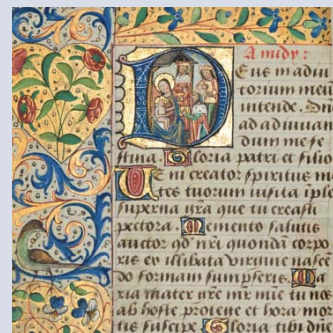 A midy:
Deus in adiu
torium meū
intende. Dn̄
ad adiuuan
dum me fe
stina. Gloria patri et filio
Veni creator spiritus m
tes tuorum uisita īple
superna gr̄a que tu creasti
pectora. Memento salutis
auctor qd̄ nr̄i quonda corpo
ris ex illibata virgine nasce
do formam sumpseris. M
ria mater gr̄e mr̄ mīe tu nos
ab hoste protege et hora mo
tis suscipe. Gloria tibi do